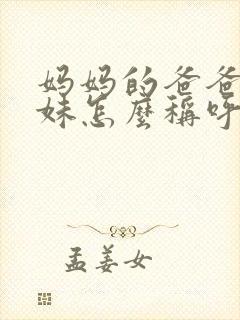 妈妈的爸爸
妹怎麼稱呼
孟姜女